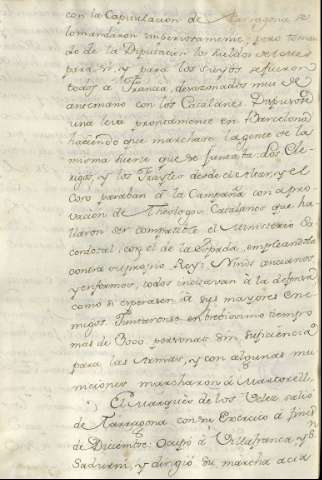 con la Capitulacion de Tarragona se
lo mandaron imperiosamente; pero toman
do de la Diputacion los sueldos de tres
para sí, y para los suyos se fueron
todos a Francia, desazonados muy de
antemano con los Catalanes. Dispusose
una leva prontamente en Barcelona
haciendo que marchase la gente de la
misma suerte que se junta: los Cle
rigos, y los Frayles desde el Altar, y el
Coro pasaban á la Campaña con apro
vacion de Theologos Catalanes que ha
llaron ser compatible el Ministerio Sa
cerdotal, con el de la Espada, empleandola
contra su proprio Rey: Niños ancianos
y enfermos, todos incitavan á la defensa
como si esperasen á sus mayores ene
migos. Juntaronse en brevisimo tiempo
mas de 8000 personas sin suficiencia
para las Armas, y con algunas mu
niciones marcharon á Martorell.
El Marqués de los Velez salió
de Tarragona con su Exercito á fines
de Diciembre: Ocupó á Villafranca, y Sn
Sadurni, y dirigió su marcha acia